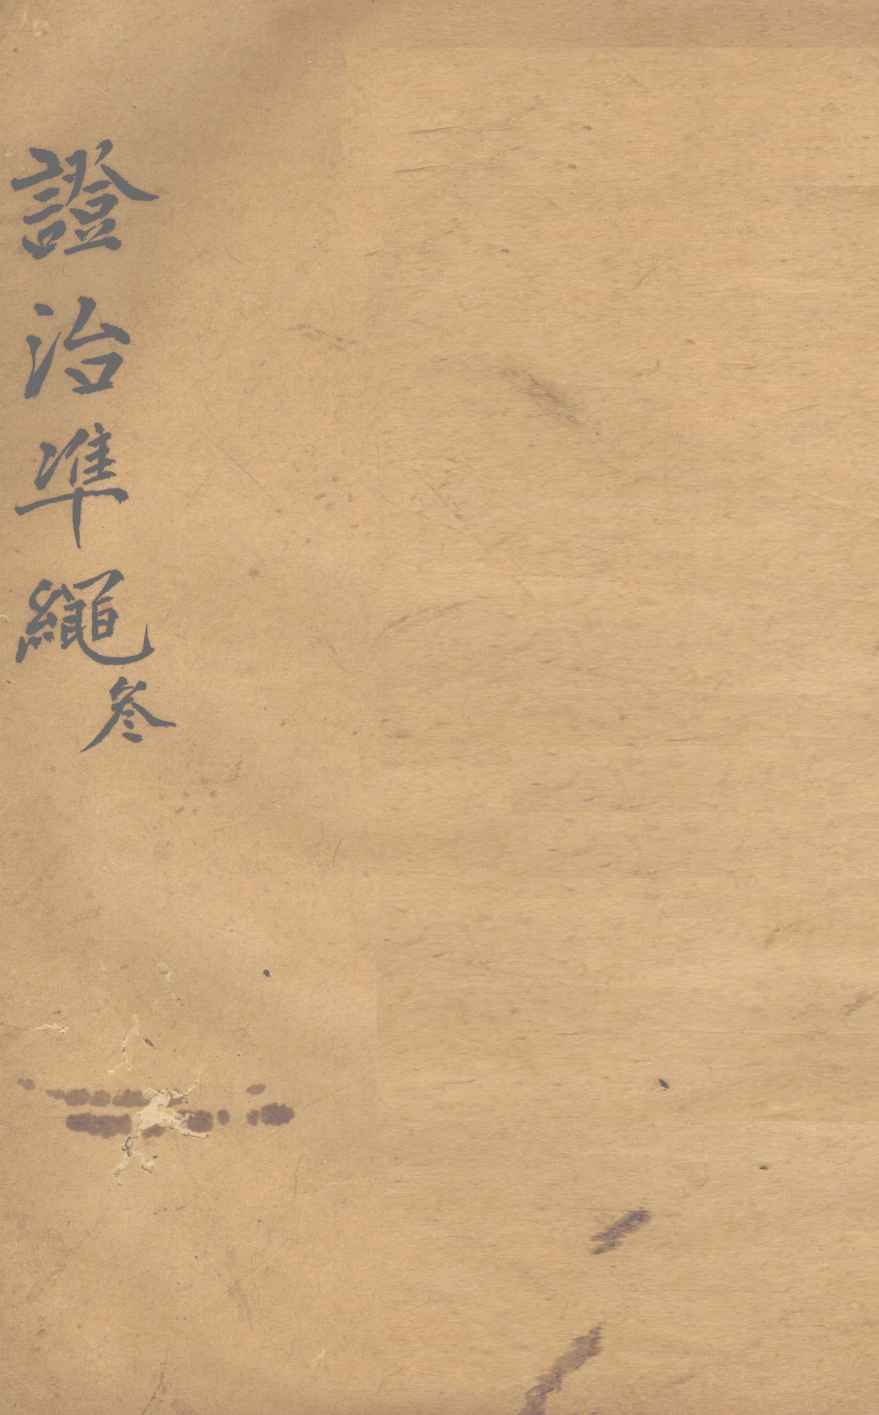 證治準繩叅